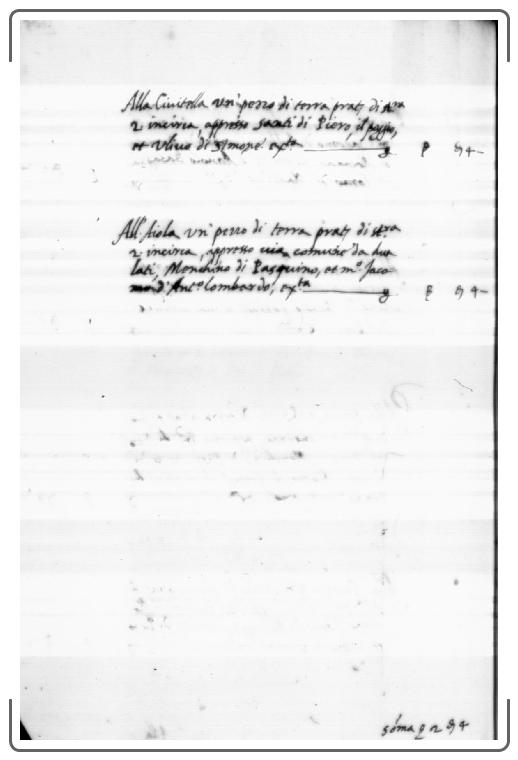 Alla Civitella un' pezzo di terra prat. di stra
2 incirca, appresso Santi di Piero, il poggio,
et Ulivo di Simone. exta
All' Aiola un' pezzo di terra prat. di stra
2 incirca, appresso via comune da due
lati, Menchino di Pasquino, et mo. Jaco
mo d' Anto. lombardo, exta
sóma 2 4